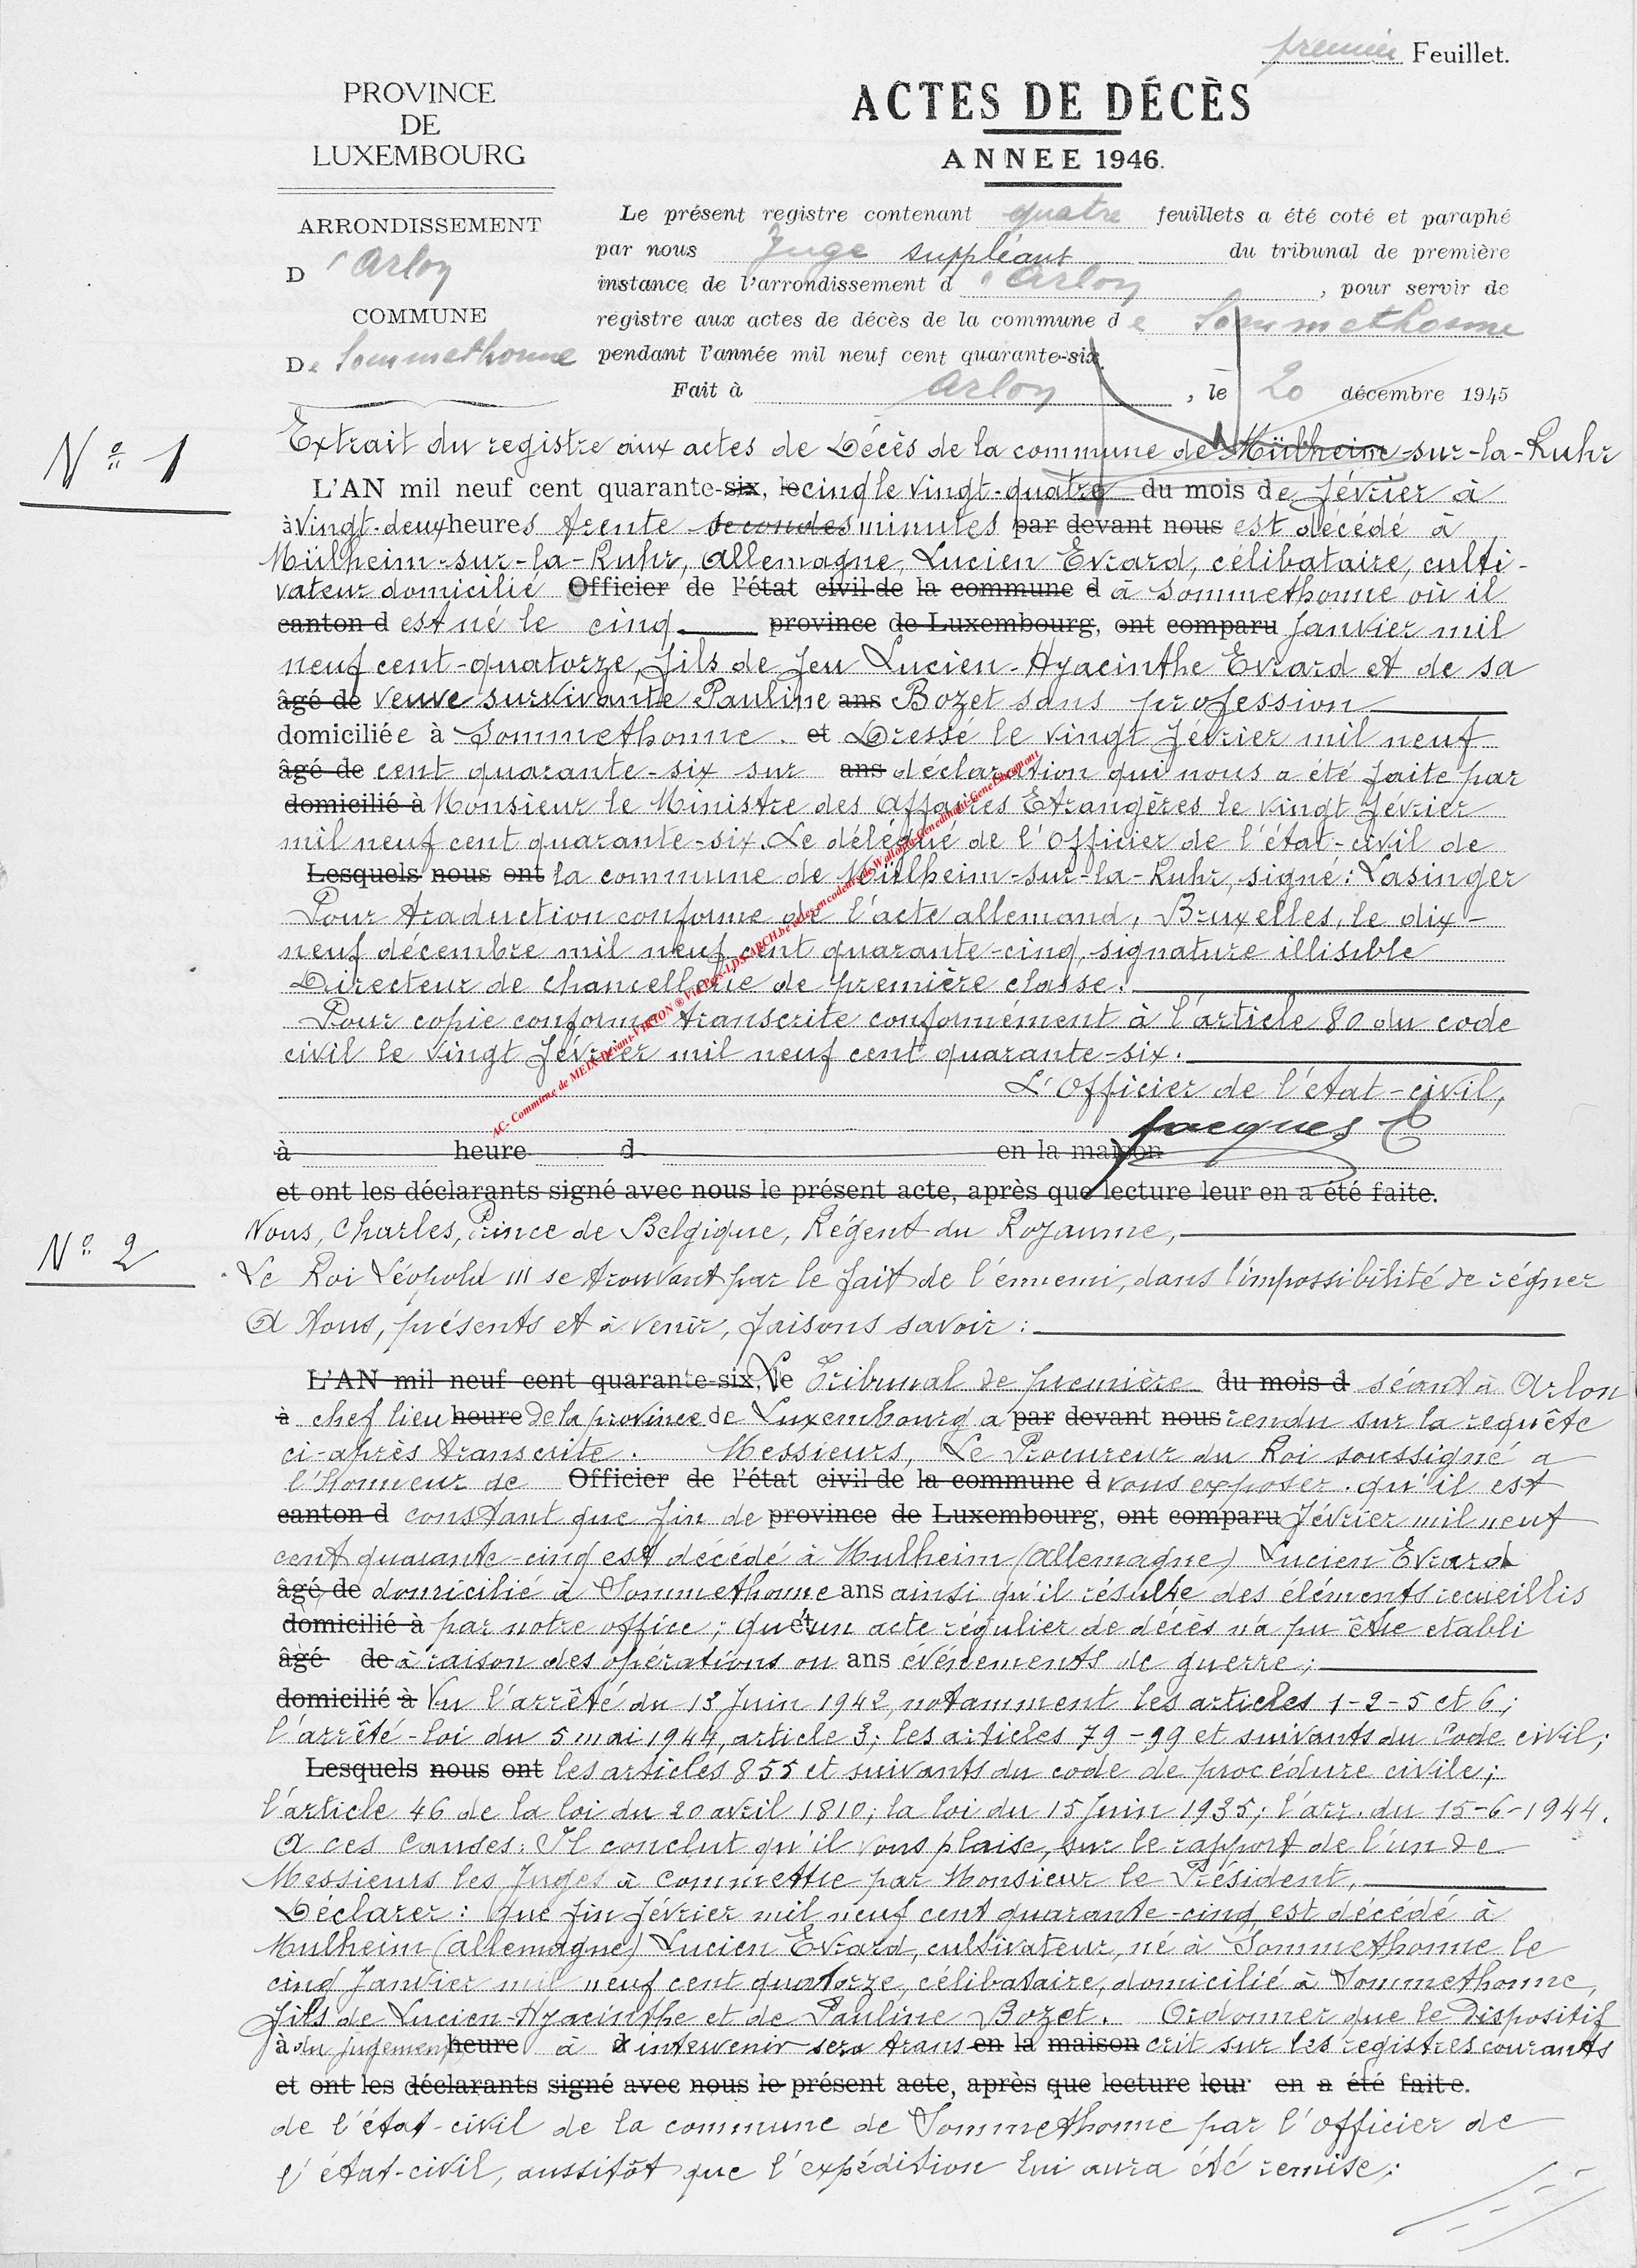 premier Feuillet.
PROVINCE
DE
LUXEMBOURG
ACTES DE DÉCÈS
ANNEE 1946.
ARRONDISSEMENT
D'Arlon
COMMUNE
De Sommethonne
Le présent registre contenant quatre feuillets a été coté et paraphé
par nous Juge suppléant du tribunal de première
instance de l'arrondissement d'Arlon, pour servir de
registre aux actes de décès de la commune de Sommethonne
pendant l'année mil neuf cent quarante-six.
Fait à Arlon, le 20 décembre 1945
N° 1
Extrait du registre aux actes de Décès de la commune de Mülheim-sur-la-Ruhr
L'AN mil neuf cent quarante-six, le cinq le vingt-quatre du mois de février à
à vingt-deux heures trente secondes minutes par devant nous est décédé à
Mülheim-sur-la-Ruhr, Allemagne, Lucien Evrard, célibataire, culti-
vateur domicilié Officier de l'état civil de la commune d à Sommethonne où il
canton d est né le cinq province de Luxembourg, ont comparu Janvier mil
neuf cent-quatorze, fils de feu Lucien-Hyacinthe Evrard et de sa
âgé de veuve survivante Pauline ans Bozet sans profession
domiciliée à Sommethonne. et Dressé le vingt février mil neuf
âgé de cent quarante-six sur ans déclaration qui nous a été faite par
domicilié à Monsieur le Ministre des Affaires Etrangères le vingt février
mil neuf cent quarante-six. Le délégué de l'Officier de l'état-civil de
Lesquels nous ont la commune de Mülheim-sur-la-Ruhr, signé: Lasinger
Pour traduction conforme de l'acte allemand, Bruxelles, le dix-
neuf décembre mil neuf cent quarante-cinq, signature illisible
Directeur de chancellerie de première classe.
Pour copie conforme transcrite conformément à l'article 80 du code
civil le vingt février mil neuf cent quarante-six.
L'Officier de l'état-civil,
Jacques C
à heure d en la maison
et ont les déclarants signé avec nous le présent acte, après que lecture leur en a été faite.
N° 2
Nous, Charles, Prince de Belgique, Régent du Royaume,
Le Roi Léopold III se trouvant par le fait de l'ennemi, dans l'impossibilité de régner
A tous, présents et à venir, faisons savoir :
L'AN mil neuf cent quarante-six, le Tribunal de première du mois d séant à Arlon
à chef lieu heure de la province de Luxembourg a par devant nous rendu sur la requête
ci-après transcrite. Messieurs, Le Procureur du Roi soussigné a
l'honneur de Officier de l'état civil de la commune d vous exposer qu'il est
canton d constant que fin de province de Luxembourg, ont comparu février mil neuf
cent quarante-cinq est décédé à Mulheim (Allemagne) Lucien Evrard
âgé de domicilié à Sommethonne ans ainsi qu'il résulte des éléments recueillis
domicilié à par notre office; qu'un acte régulier de décès n'a pu être etabli
âgé de à raison des opérations ou ans événements de guerre;
domicilié à Vu l'arrêté du 13 Juin 1942, notamment les articles 1-2-5 et 6;
l'arrêté-loi du 5 mai 1944, article 3; les articles 79-99 et suivants du Code civil;
Lesquels nous ont les articles 855 et suivants du code de procédure civile;
l'article 46 de la loi du 20 avril 1810; la loi du 15 Juin 1935; l'arr. du 15-6-1944.
A ces causes: Il conclut qu'il vous plaise, sur le rapport de l'un de
Messieurs les Juges à commettre par Monsieur le Président,
Déclarer: Que fin février mil neuf cent quarante-cinq est décédé à
Mulheim (Allemagne) Lucien Evrard, cultivateur, né à Sommethonne le
cinq Janvier mil neuf cent quatorze, célibataire, domicilié à Sommethonne,
fils de Lucien-Hyacinthe et de Pauline Bozet. Ordonner que le dispositif
à du jugement heure à d intervenir sera trans en la maison crit sur les registres courants
et ont les déclarants signé avec nous le présent acte, après que lecture leur en a été faite.
de l'état-civil de la commune de Sommethonne par l'officier de
l'état-civil, aussitôt que l'expédition lui aura été remise;